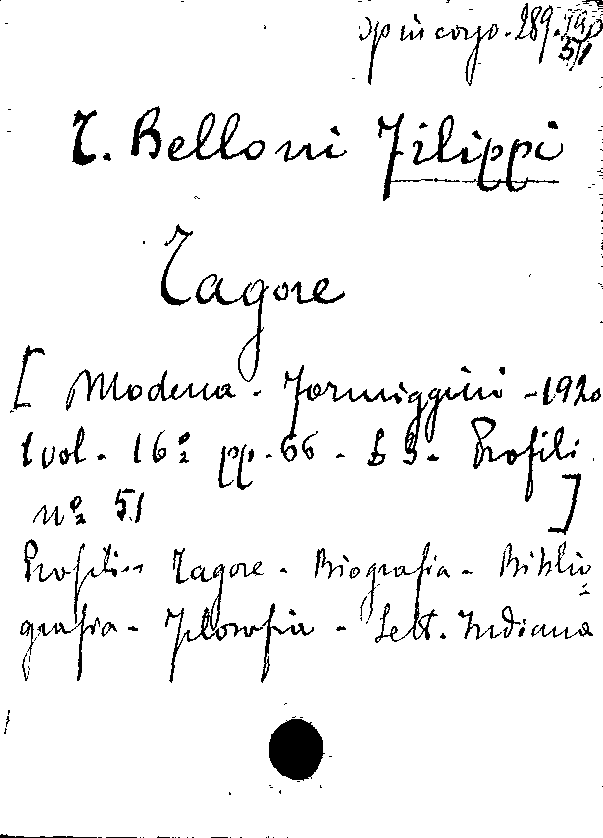 Op in corso. 289.
51
Belloni Filippi
Tagore
[ Modena - Formiggini - 1920
1 vol. - 16º pp. 66 - £ 3 - Profili
nº 51 ]
Profili - Tagore - Biografia - Biblio=
grafia - Filosofia - Lett. Indiana